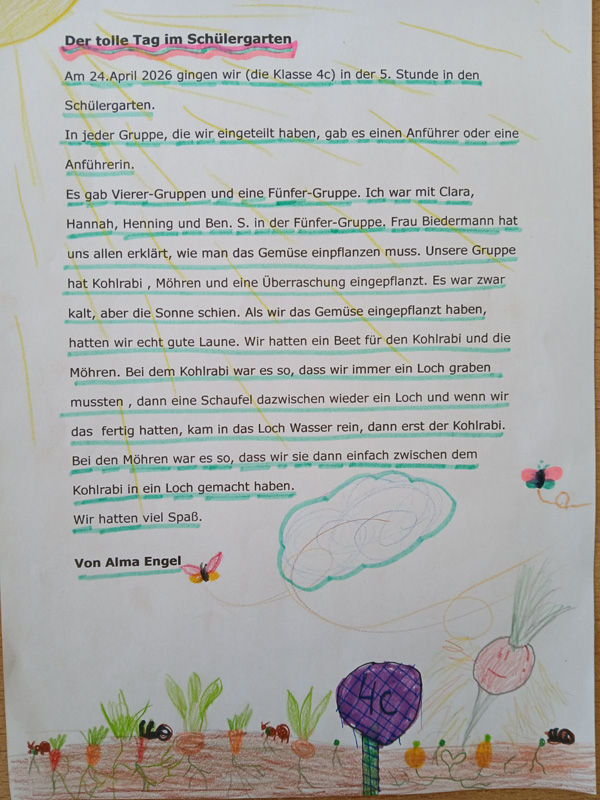 Der tolle Tag im Schülergarten
Am 24.April 2026 gingen wir (die Klasse 4c) in der 5. Stunde in den
Schülergarten.
In jeder Gruppe, die wir eingeteilt haben, gab es einen Anführer oder eine
Anführerin.
Es gab Vierer-Gruppen und eine Fünfer-Gruppe. Ich war mit Clara,
Hannah, Henning und Ben. S. in der Fünfer-Gruppe. Frau Biedermann hat
uns allen erklärt, wie man das Gemüse einpflanzen muss. Unsere Gruppe
hat Kohlrabi , Möhren und eine Überraschung eingepflanzt. Es war zwar
kalt, aber die Sonne schien. Als wir das Gemüse eingepflanzt haben,
hatten wir echt gute Laune. Wir hatten ein Beet für den Kohlrabi und die
Möhren. Bei dem Kohlrabi war es so, dass wir immer ein Loch graben
mussten , dann eine Schaufel dazwischen wieder ein Loch und wenn wir
das  fertig hatten, kam in das Loch Wasser rein, dann erst der Kohlrabi.
Bei den Möhren war es so, dass wir sie dann einfach zwischen dem
Kohlrabi in ein Loch gemacht haben.
Wir hatten viel Spaß.
Von Alma Engel
4c